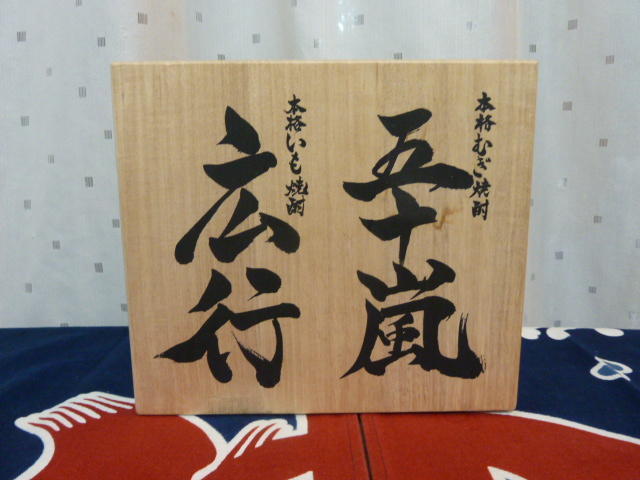 本格むぎ焼酎
五十嵐
本格いも焼酎
広行